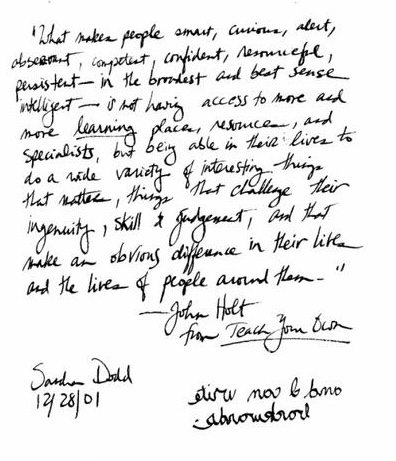 "What makes people smart, curious, alert,
observant, competent, confident, resourceful,
persistent — in the broadest and best sense
intelligent — is not having access to more and
more learning places, resources, and
specialists, but being able in their lives to
do a wide variety of interesting things
that matter, things that challenge their
ingenuity, skill & judgement, and that
make an obvious difference in their lives
and the lives of people around them."
—John Holt
from Teach Your Own
Sandra Dodd
12/28/01
and I can write
backwards.